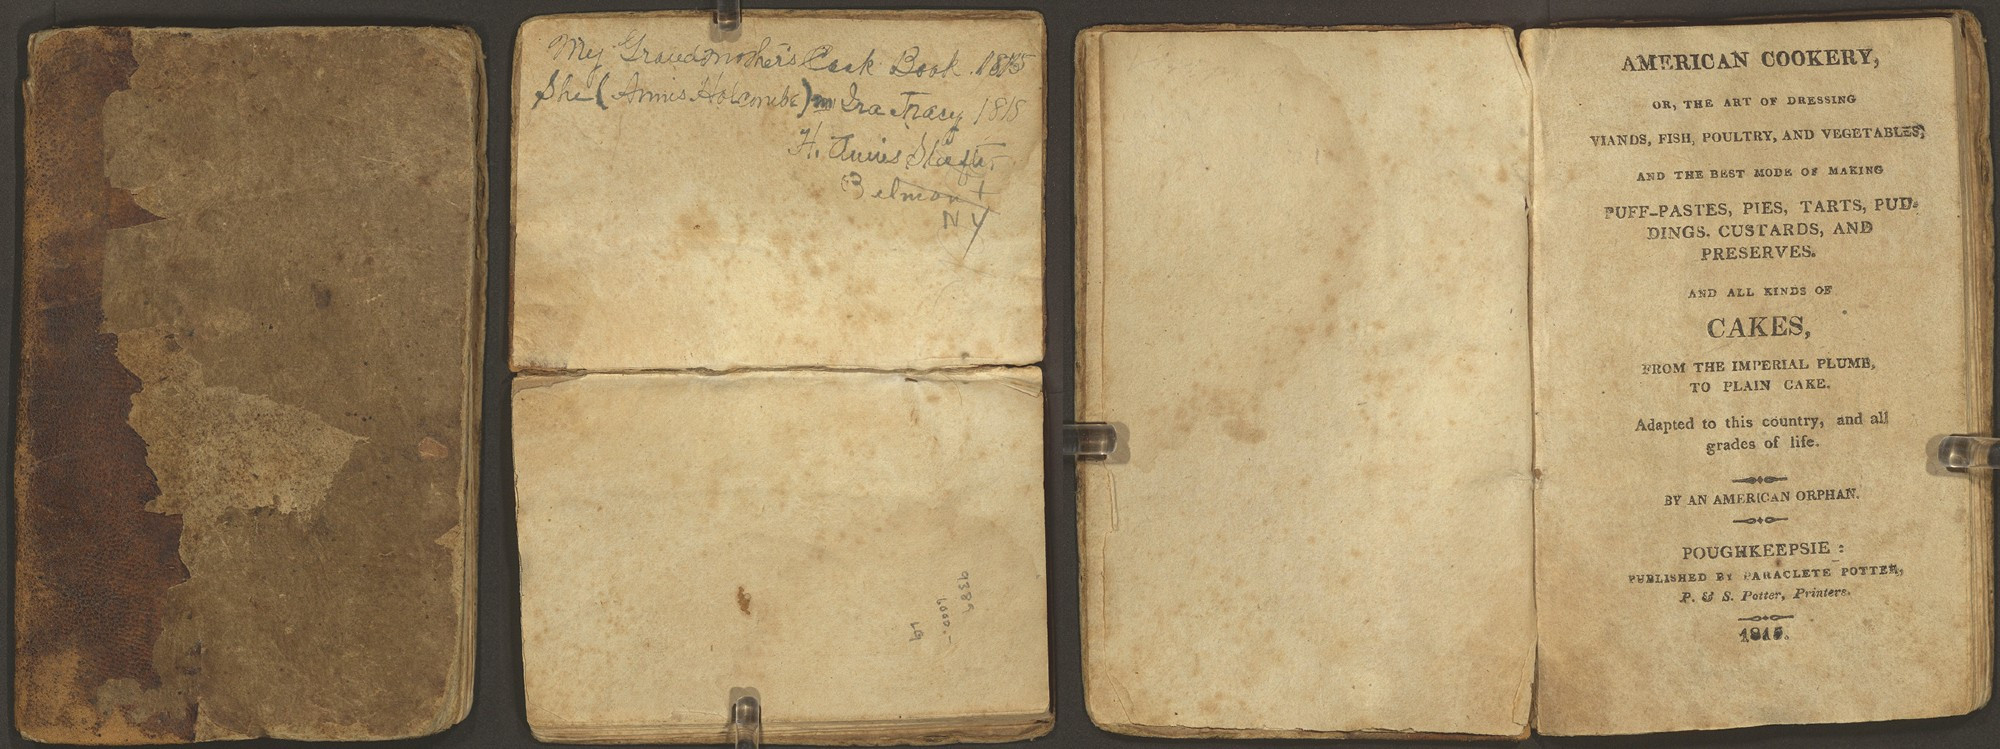 My Grandmother's Cook Book. 1815
She (Annis Holcombe) m Ira Tracy 1818
H. Annis
Belmont
NY
9389
6000.-
AMERICAN COOKERY,
OR, THE ART OF DRESSING
VIANDS, FISH, POULTRY, AND VEGETABLES,
AND THE BEST MODE OF MAKING
PUFF-PASTES, PIES, TARTS, PUD-
DINGS. CUSTARDS, AND
PRESERVES.
AND ALL KINDS OF
CAKES,
FROM THE IMPERIAL PLUMB,
TO PLAIN CAKE.
Adapted to this country, and all
grades of life.
BY AN AMERICAN ORPHAN.
POUGHKEEPSIE :
PUBLISHED BY PARACLETE POTTER,
P. & S. Potter, Printers.
1815.